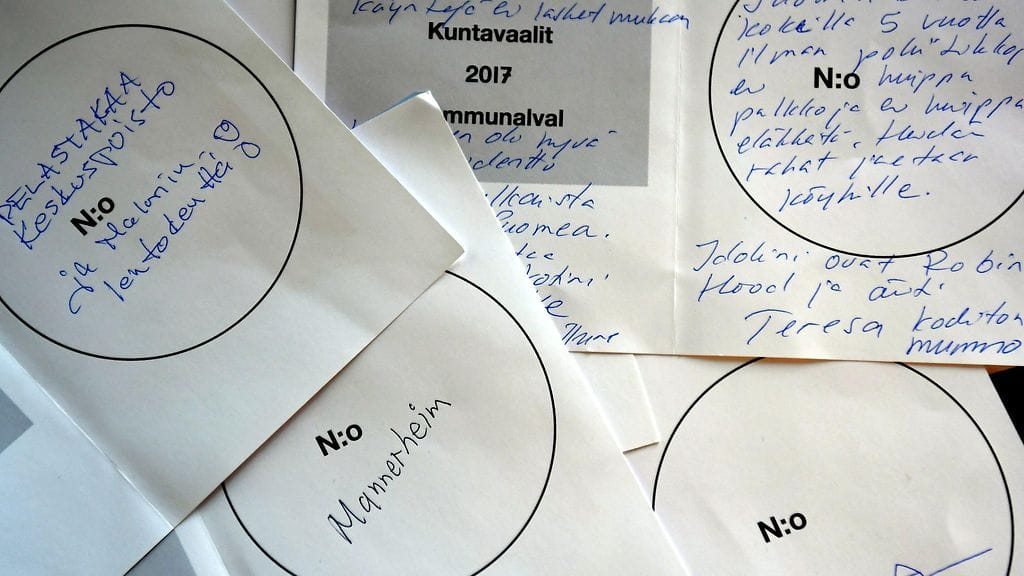 PELASTAKAA
Keskuspuisto
N:o
ja Malmin
lentokenttä
ei lasket mukaan
Kuntavaalit
2017
mmunalval
oli hyvä
identti
Suomea.
kokeilla 5 vuotta
ilman poliitikkoja
N:o
ei huippu
palkkoja ei huippu
eläkkeitä. Heidän
rahat jaetaan
köyhille.
Idolini ovat Robin
Hood ja äiti
Teresa koditon
mummo
N:o
Mannerheim
N:o